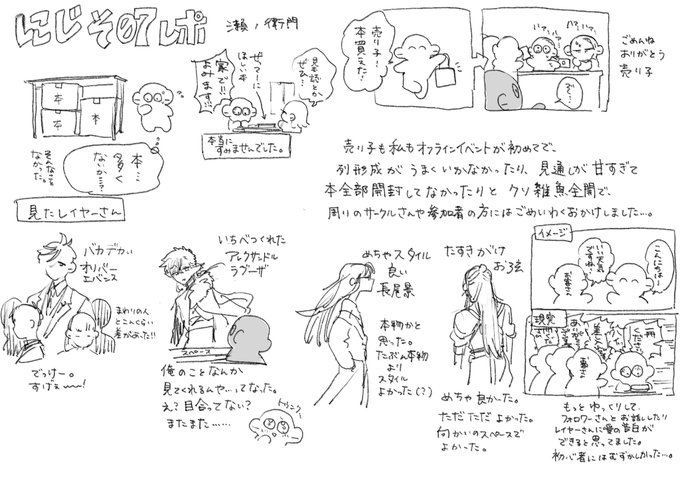 にじそ07レポ
瀬ノ衛門
本
本
本
本…
多く
ないか…?
そんなこと
なかった。
見本誌とか
ぜひ…
ぜってーに
ほしい本
家で!!
よみます!!
本当に
すみませんでした。
売り子!
本買えた!
ごめんね
ありがとう
売り子
売り子も私もオンラインイベントが初めてで、
列形成がうまくいかなかったり、見通しが甘すぎて
本全部開封してなかったりとクソ雑魚全開で、
周りのサークルさんや参加者の方にはごめいわくおかけしました…。
見たレイヤーさん
バカデカい
オリバー
エバンス
まわりの人
とこんくらい
差があった!!
でっけー。
すげぇ〜〜!
いちべつくれた
アレクサンドル
ラグーザ
スペース
俺のことなんか
見てくれるんや…ってなった。
え?目合ってない?
またまた……
トゥンク…
めちゃスタイル
良い
長尾景
本物かと
思った。
たぶん本物
より
スタイル
よかった(?)
たすきがけ
お弦
めちゃ良かった。
ただただよかった。
向かいのスペースで
よかった。
イメージ
こんにちはー
いい天気
ですね…
お客さん
現実
一冊
ください
お客さん
もっとゆっくりして、
フォロワーさんとお話ししたり
レイヤーさんに愛の告白が
できると思ってました。
初心者にはむずかしかった…。